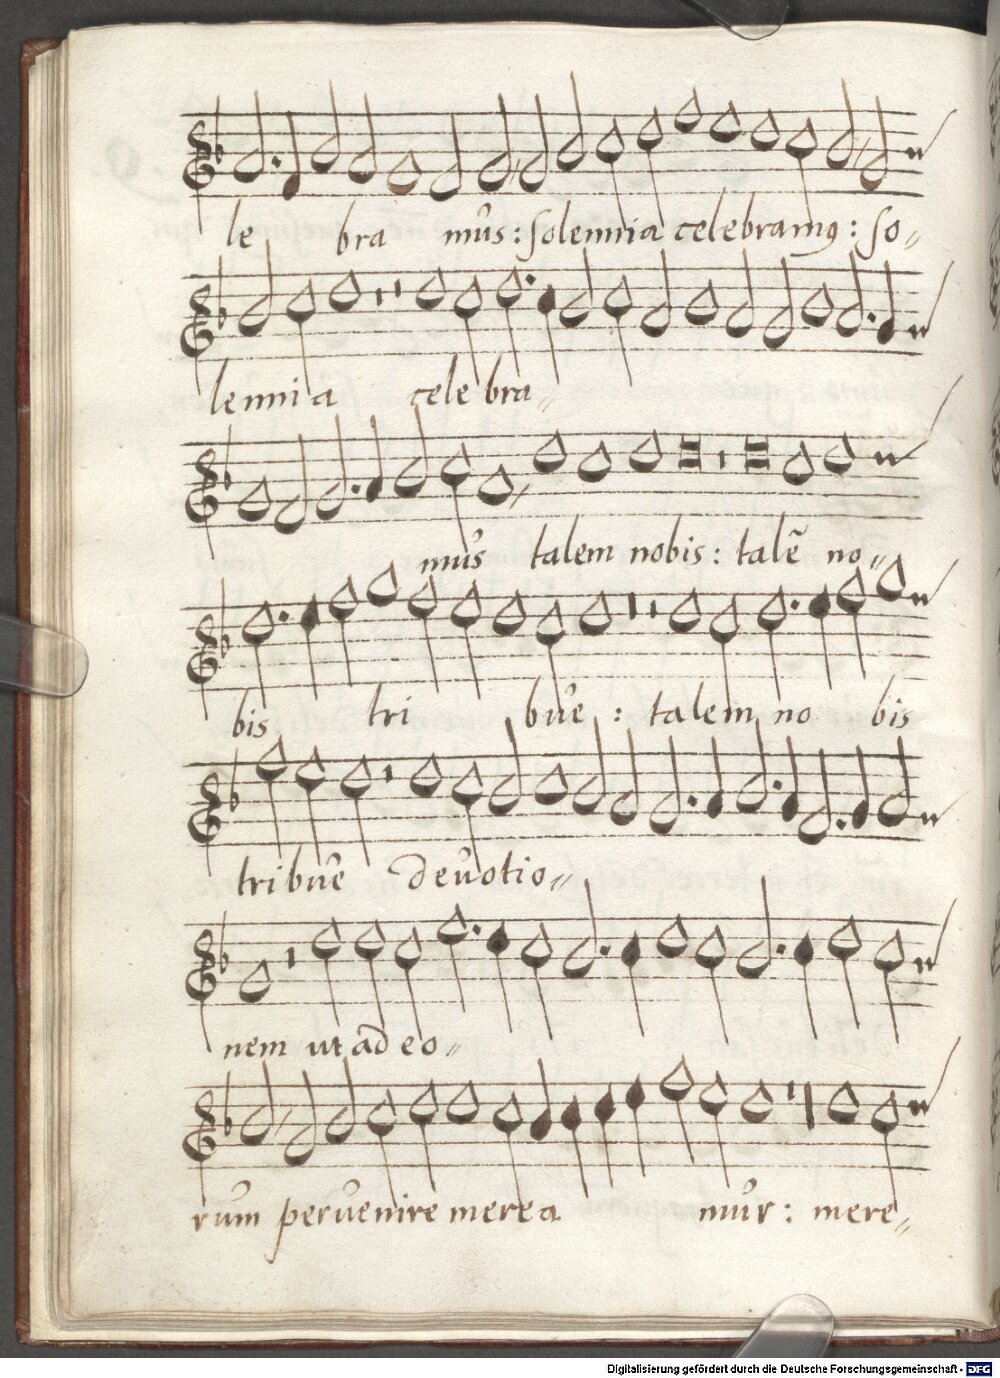 le bra mus : solennia celebramꝰ : so
lennia celebra
mus talem nobis : talē no
bis tri bue : talem no bis
tribue deuotio
nem ut ad eo
rum peruenire merea mur : mere
Digitalisierung gefördert durch die Deutsche Forschungsgemeinschaft - DFG